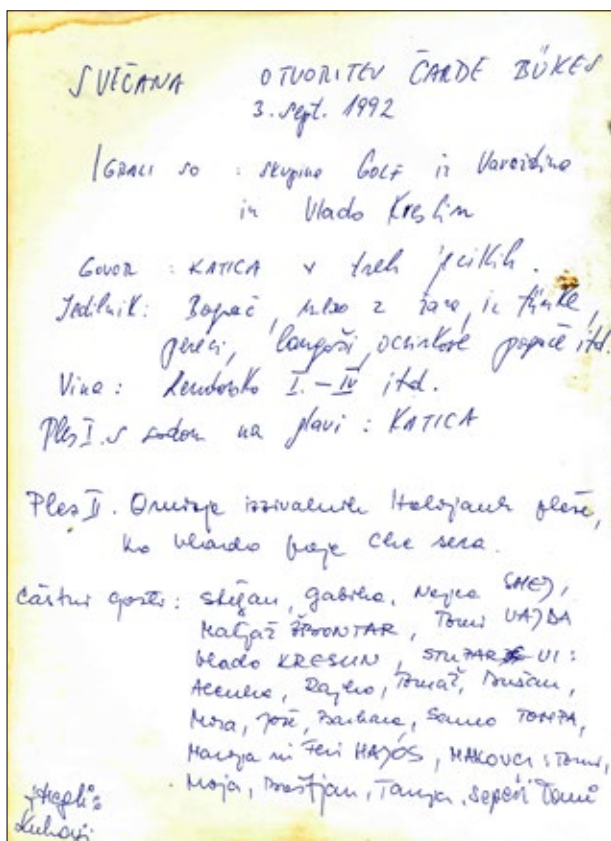 SVEČANA OTVORITEV ČARDE BÜKES
3. sept. 1992
IGRALI SO : skupina GOLF iz Varaždina
in Vlado Kreslin
GOVOR : KATICA v treh jezikih.
Jedilnik: Bograč, meso z žara, iz
pereci, langoši, ocvirkove pogače itd.
Vina : Lendavsko I. – IV itd.
Ples I. s sodom na glavi : KATICA
Ples II. Omizje izzivalnih Italijank pleše,
ko Vlado poje Che sera.
Častni gosti : Štefan, Gabika, Nejca SMEJ,
Matjaž ŽIPONTAR, Tomi VAJDA
Vlado KRESLIN, STUPARJEVI :
Alenka, Rajko, Tomaž, Dušan,
Mira, Jože, Barbara, Samo TOMPA,
Marija in Feri HAJÓS, MAKOVCI : Tomi,
Moja, Boštjan, Tanja, Tomi